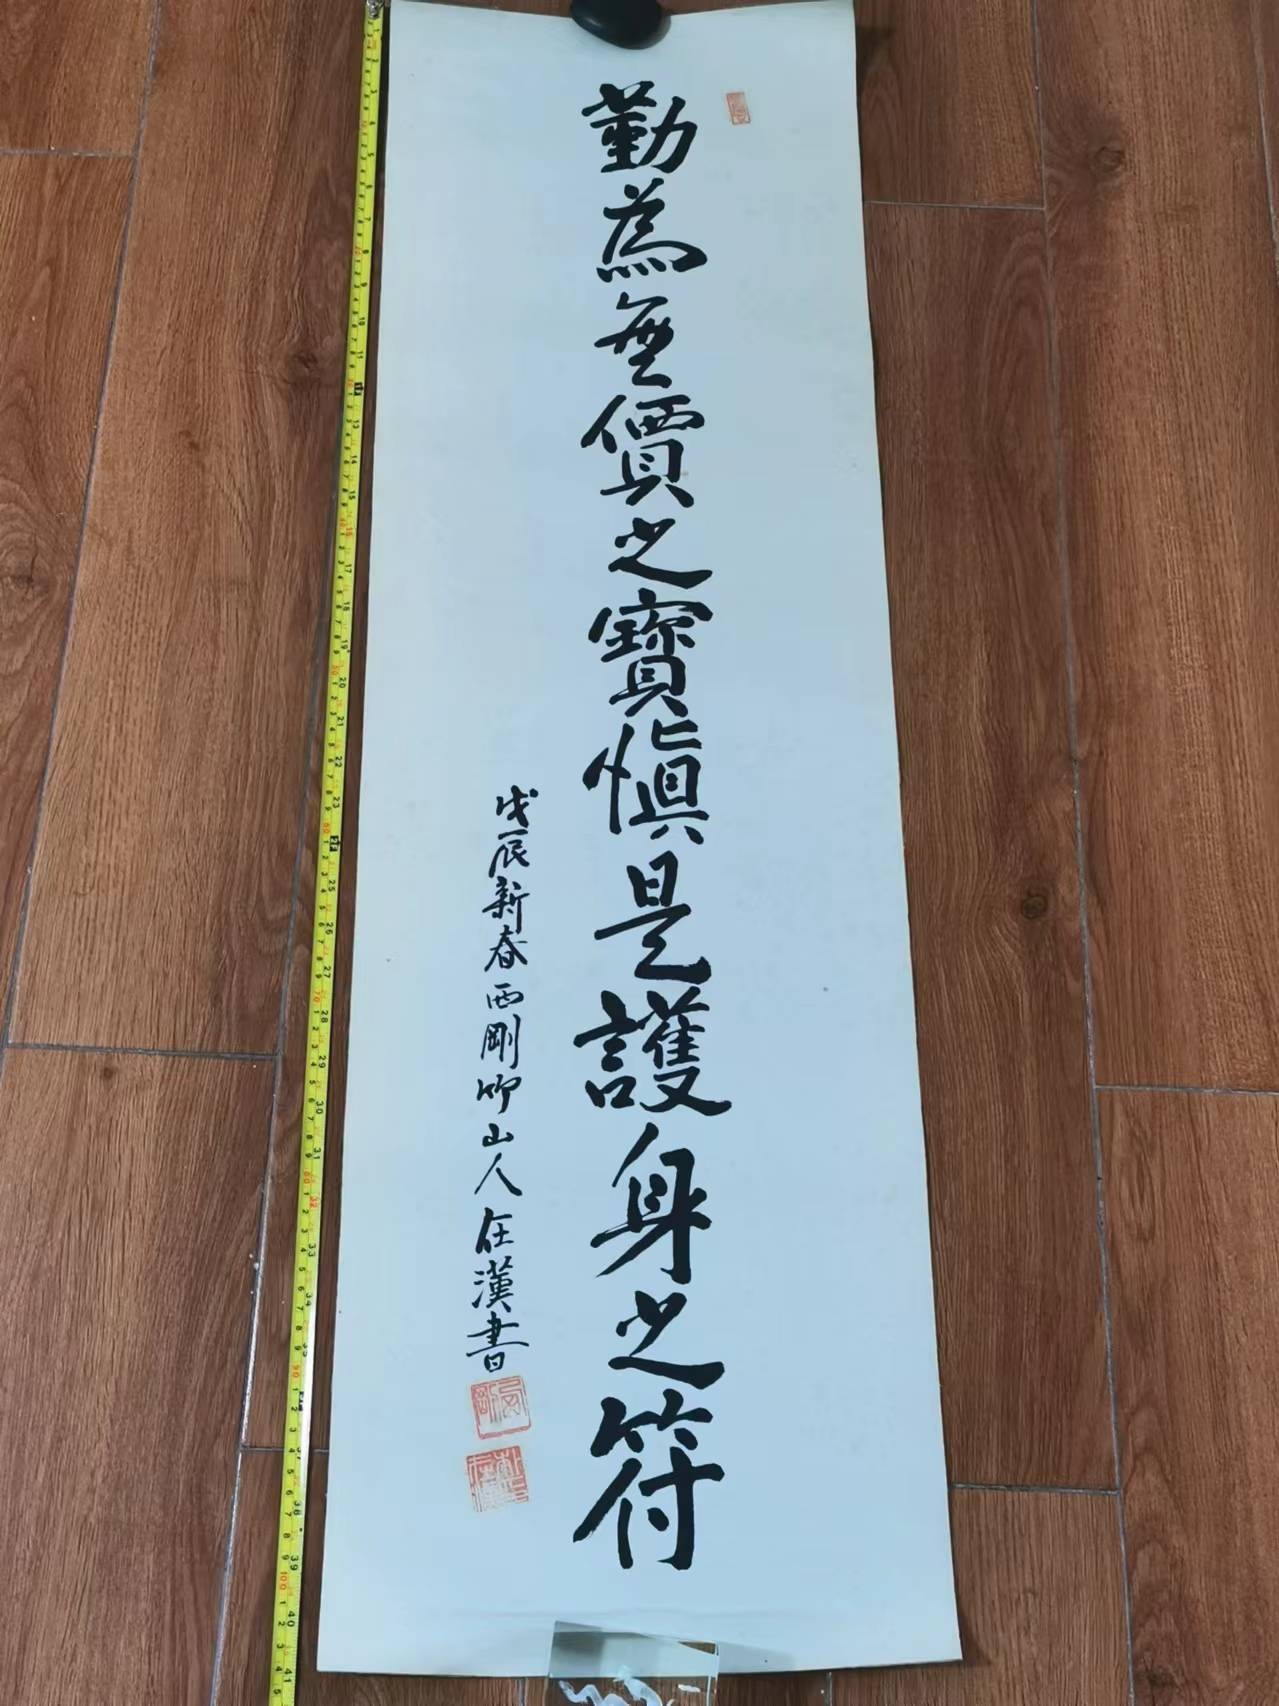 勤為無價之寶慎是護身之符
戊辰新春西剛竹山人在漢書